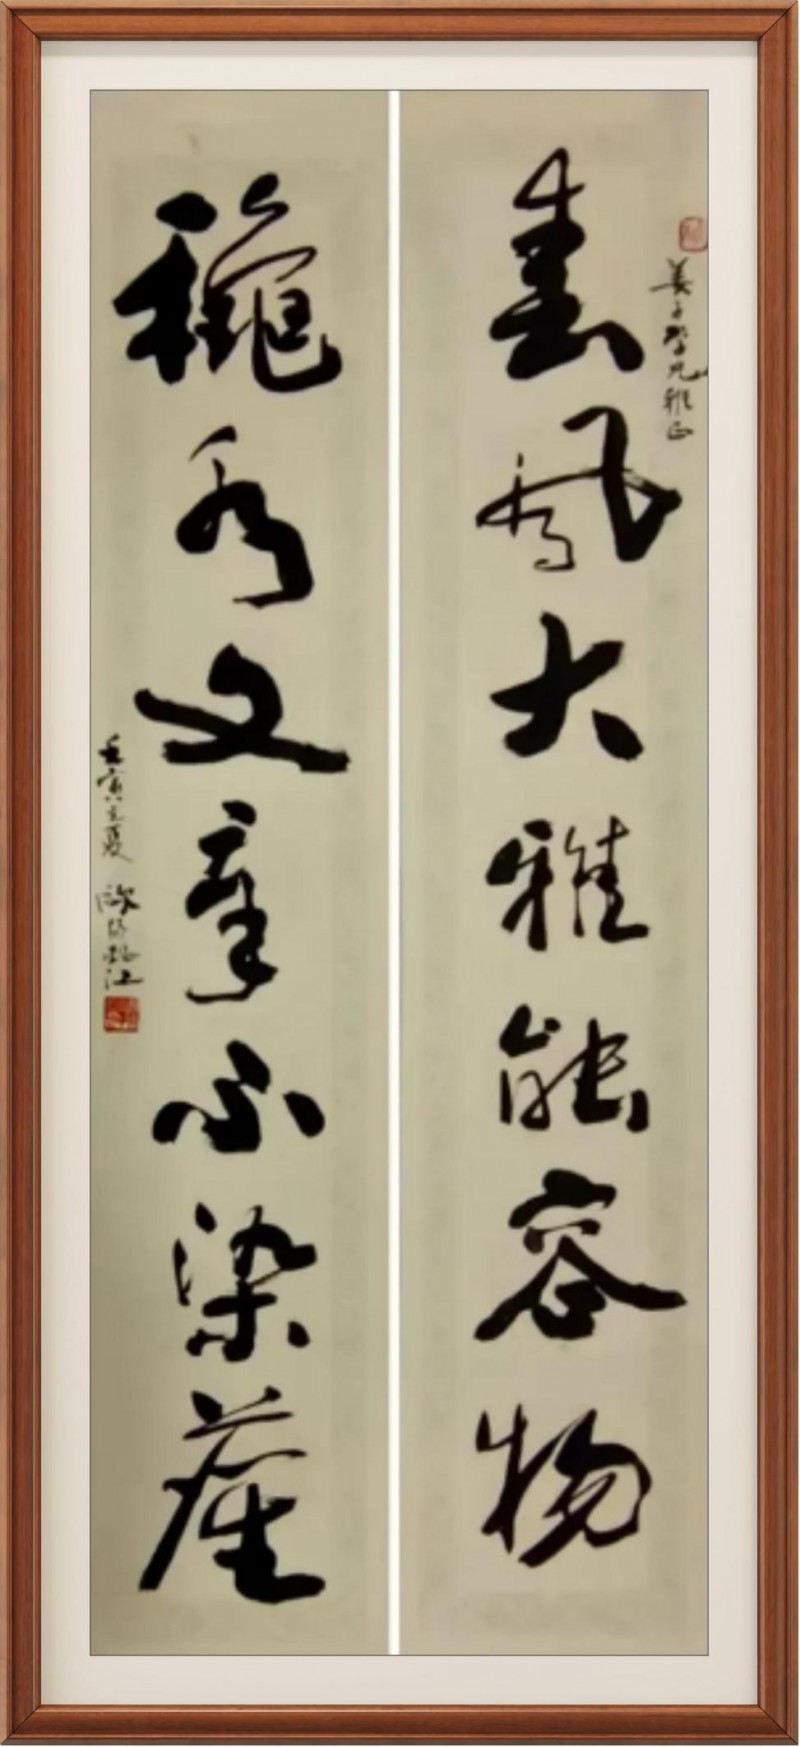 春风大雅能容物
秋水文章不染尘
姜子学兄雅正
壬寅之夏 欧阳江